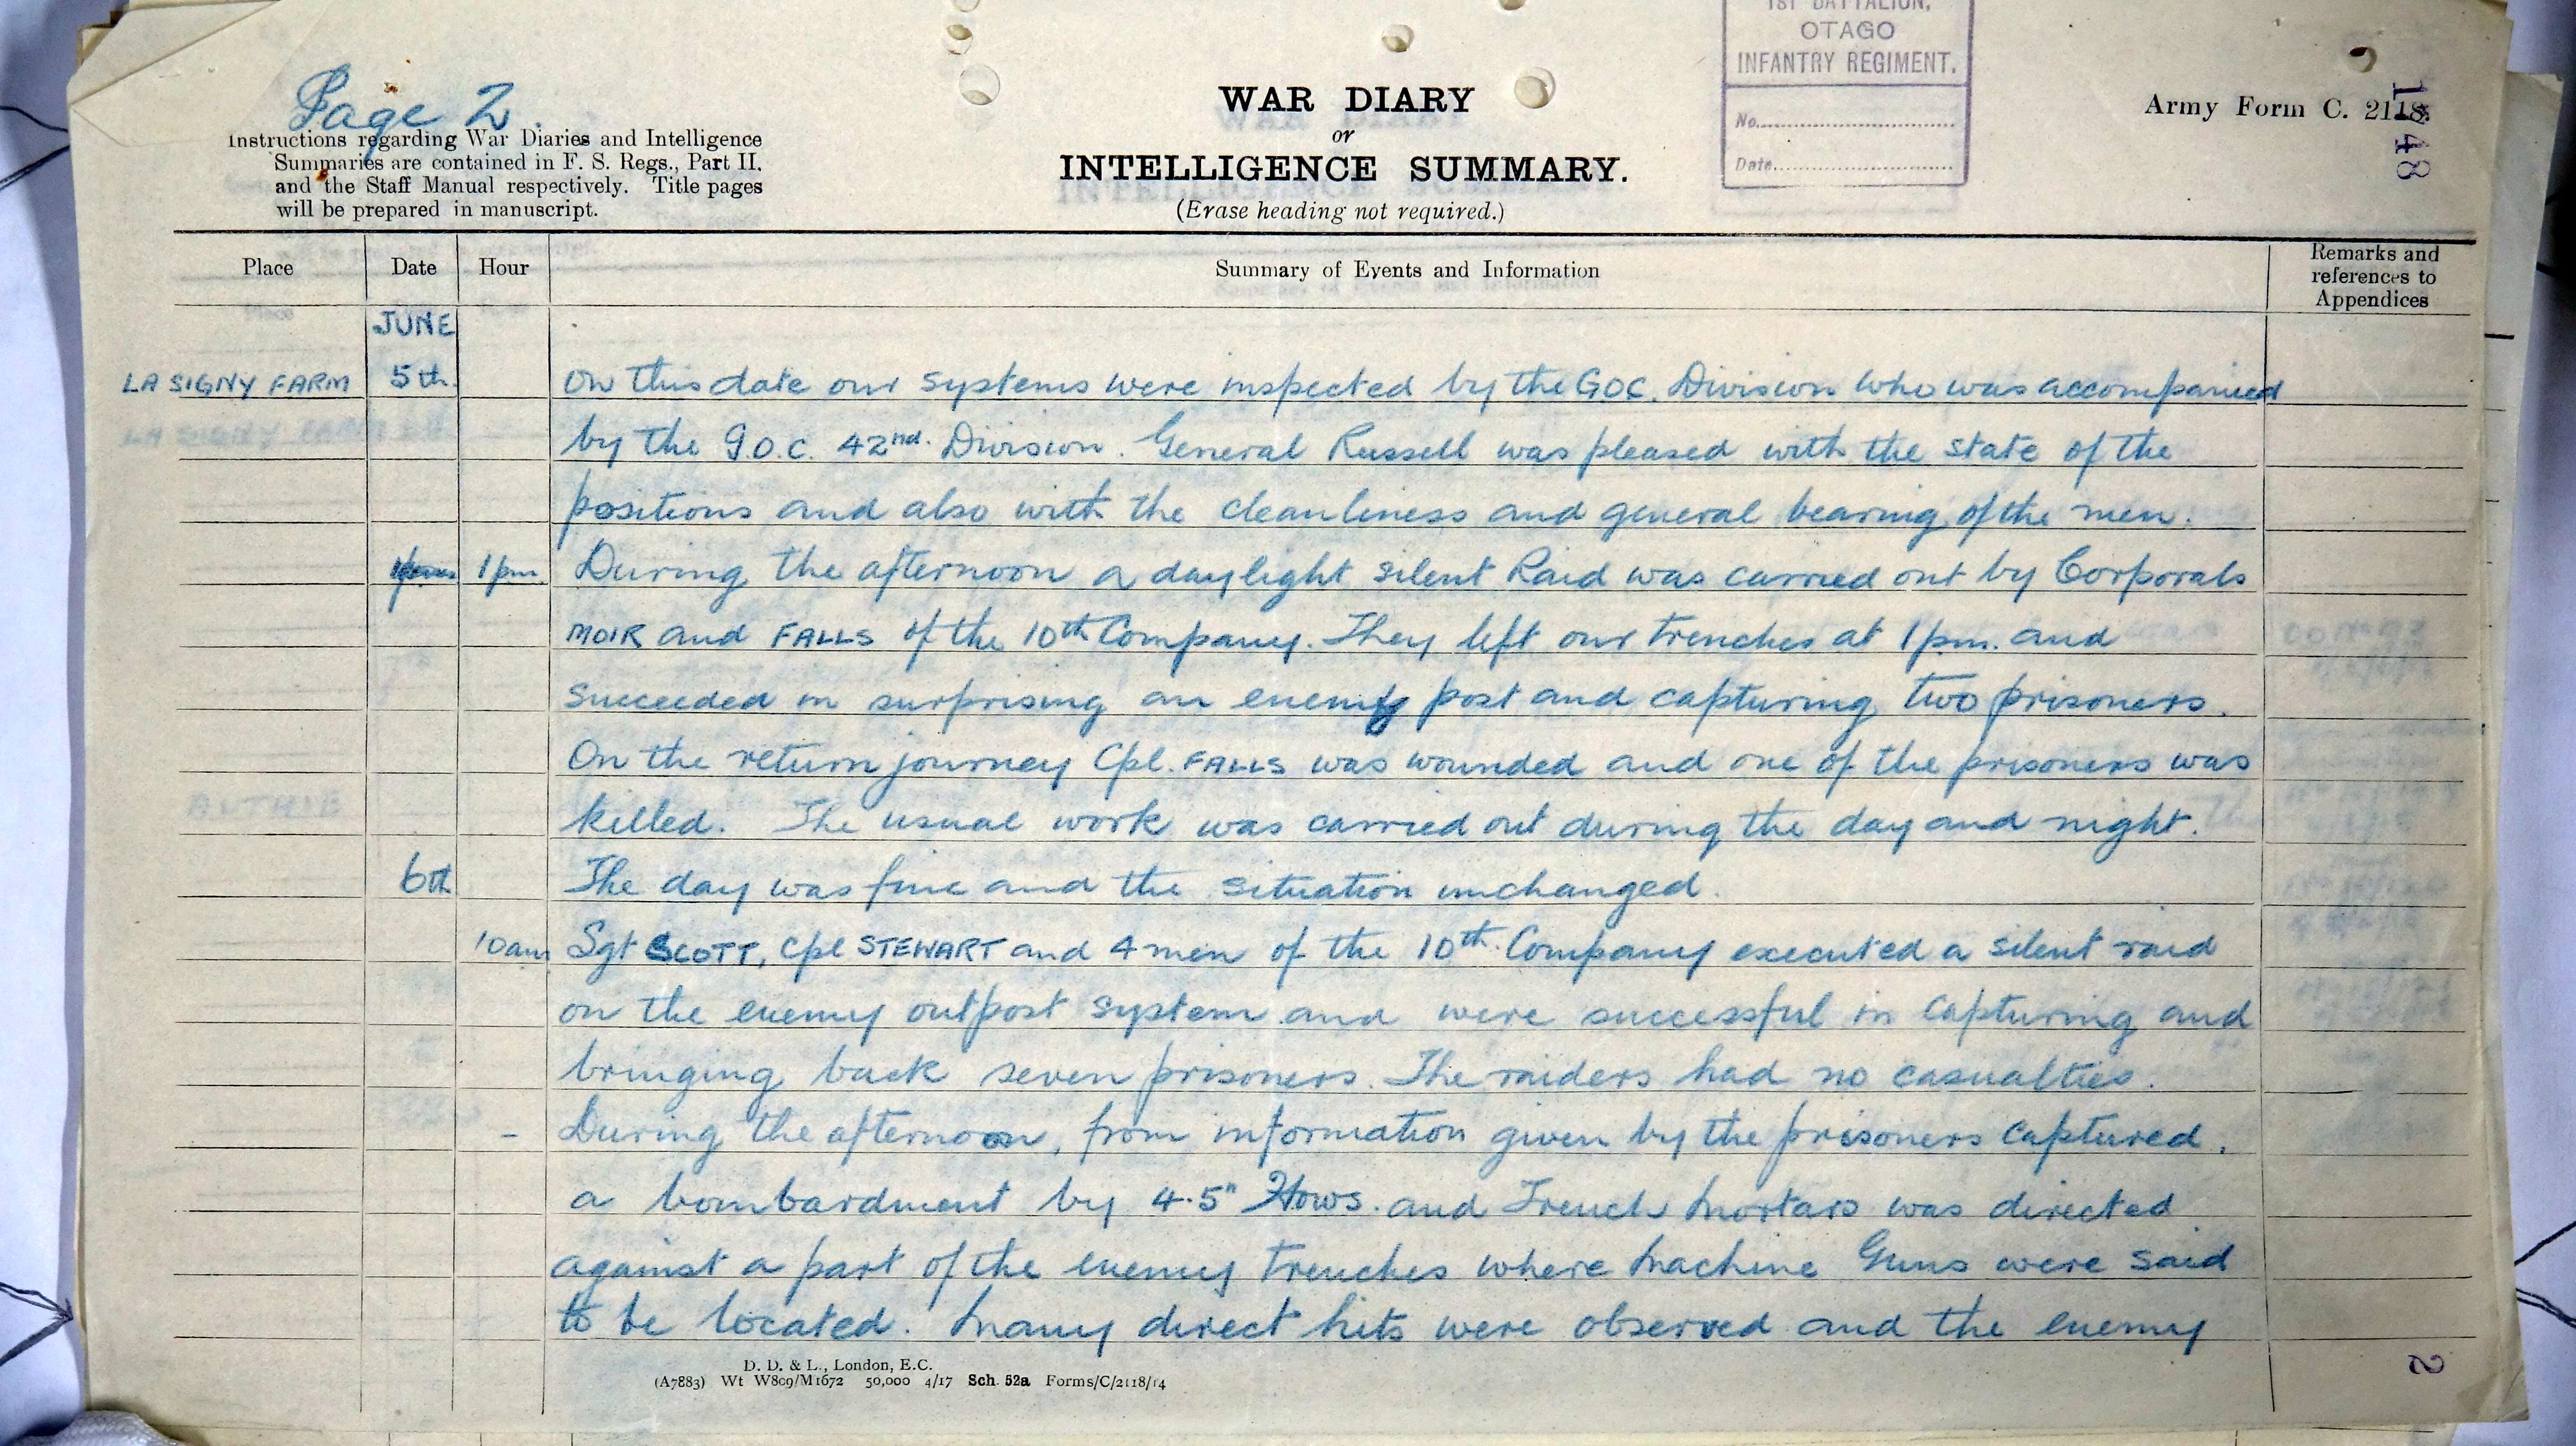 1ST BATTALION,
OTAGO
INFANTRY REGIMENT.
No.
Date.
Page 2.
Instructions regarding War Diaries and Intelligence
Summaries are contained in F. S. Regs., Part II.
and the Staff Manual respectively. Title pages
will be prepared in manuscript.
WAR DIARY
or
INTELLIGENCE SUMMARY.
(Erase heading not required.)
Army Form C. 2118.
1448
Place Date Hour Summary of Events and Information Remarks and
references to
Appendices
JUNE
LA SIGNY FARM 5th. On this date our systems were inspected by the GOC. Division who was accompanied
by the G.O.C. 42nd. Division. General Russell was pleased with the state of the
positions and also with the cleanliness and general bearing of the men.
1pm. During the afternoon a daylight silent Raid was carried out by Corporals
MOIR and FALLS of the 10th Company. They left our trenches at 1pm. and
succeeded in surprising an enemy post and capturing two prisoners.
On the return journey Cpl. FALLS was wounded and one of the prisoners was
killed. The usual work was carried out during the day and night.
6th The day was fine and the situation unchanged.
10am Sgt SCOTT, Cpl STEWART and 4 men of the 10th. Company executed a silent raid
on the enemy outpost system and were successful in capturing and
bringing back seven prisoners. The raiders had no casualties.
- During the afternoon, from information given by the prisoners captured,
a bombardment by 4.5" Hows. and Trench Mortars was directed
against a part of the enemy trenches where Machine Guns were said
to be located. Many direct hits were observed and the enemy
D. D. & L., London, E.C.
(A7883) Wt W809/M1672 50,000 4/17 Sch. 52a Forms/C/2118/14
2